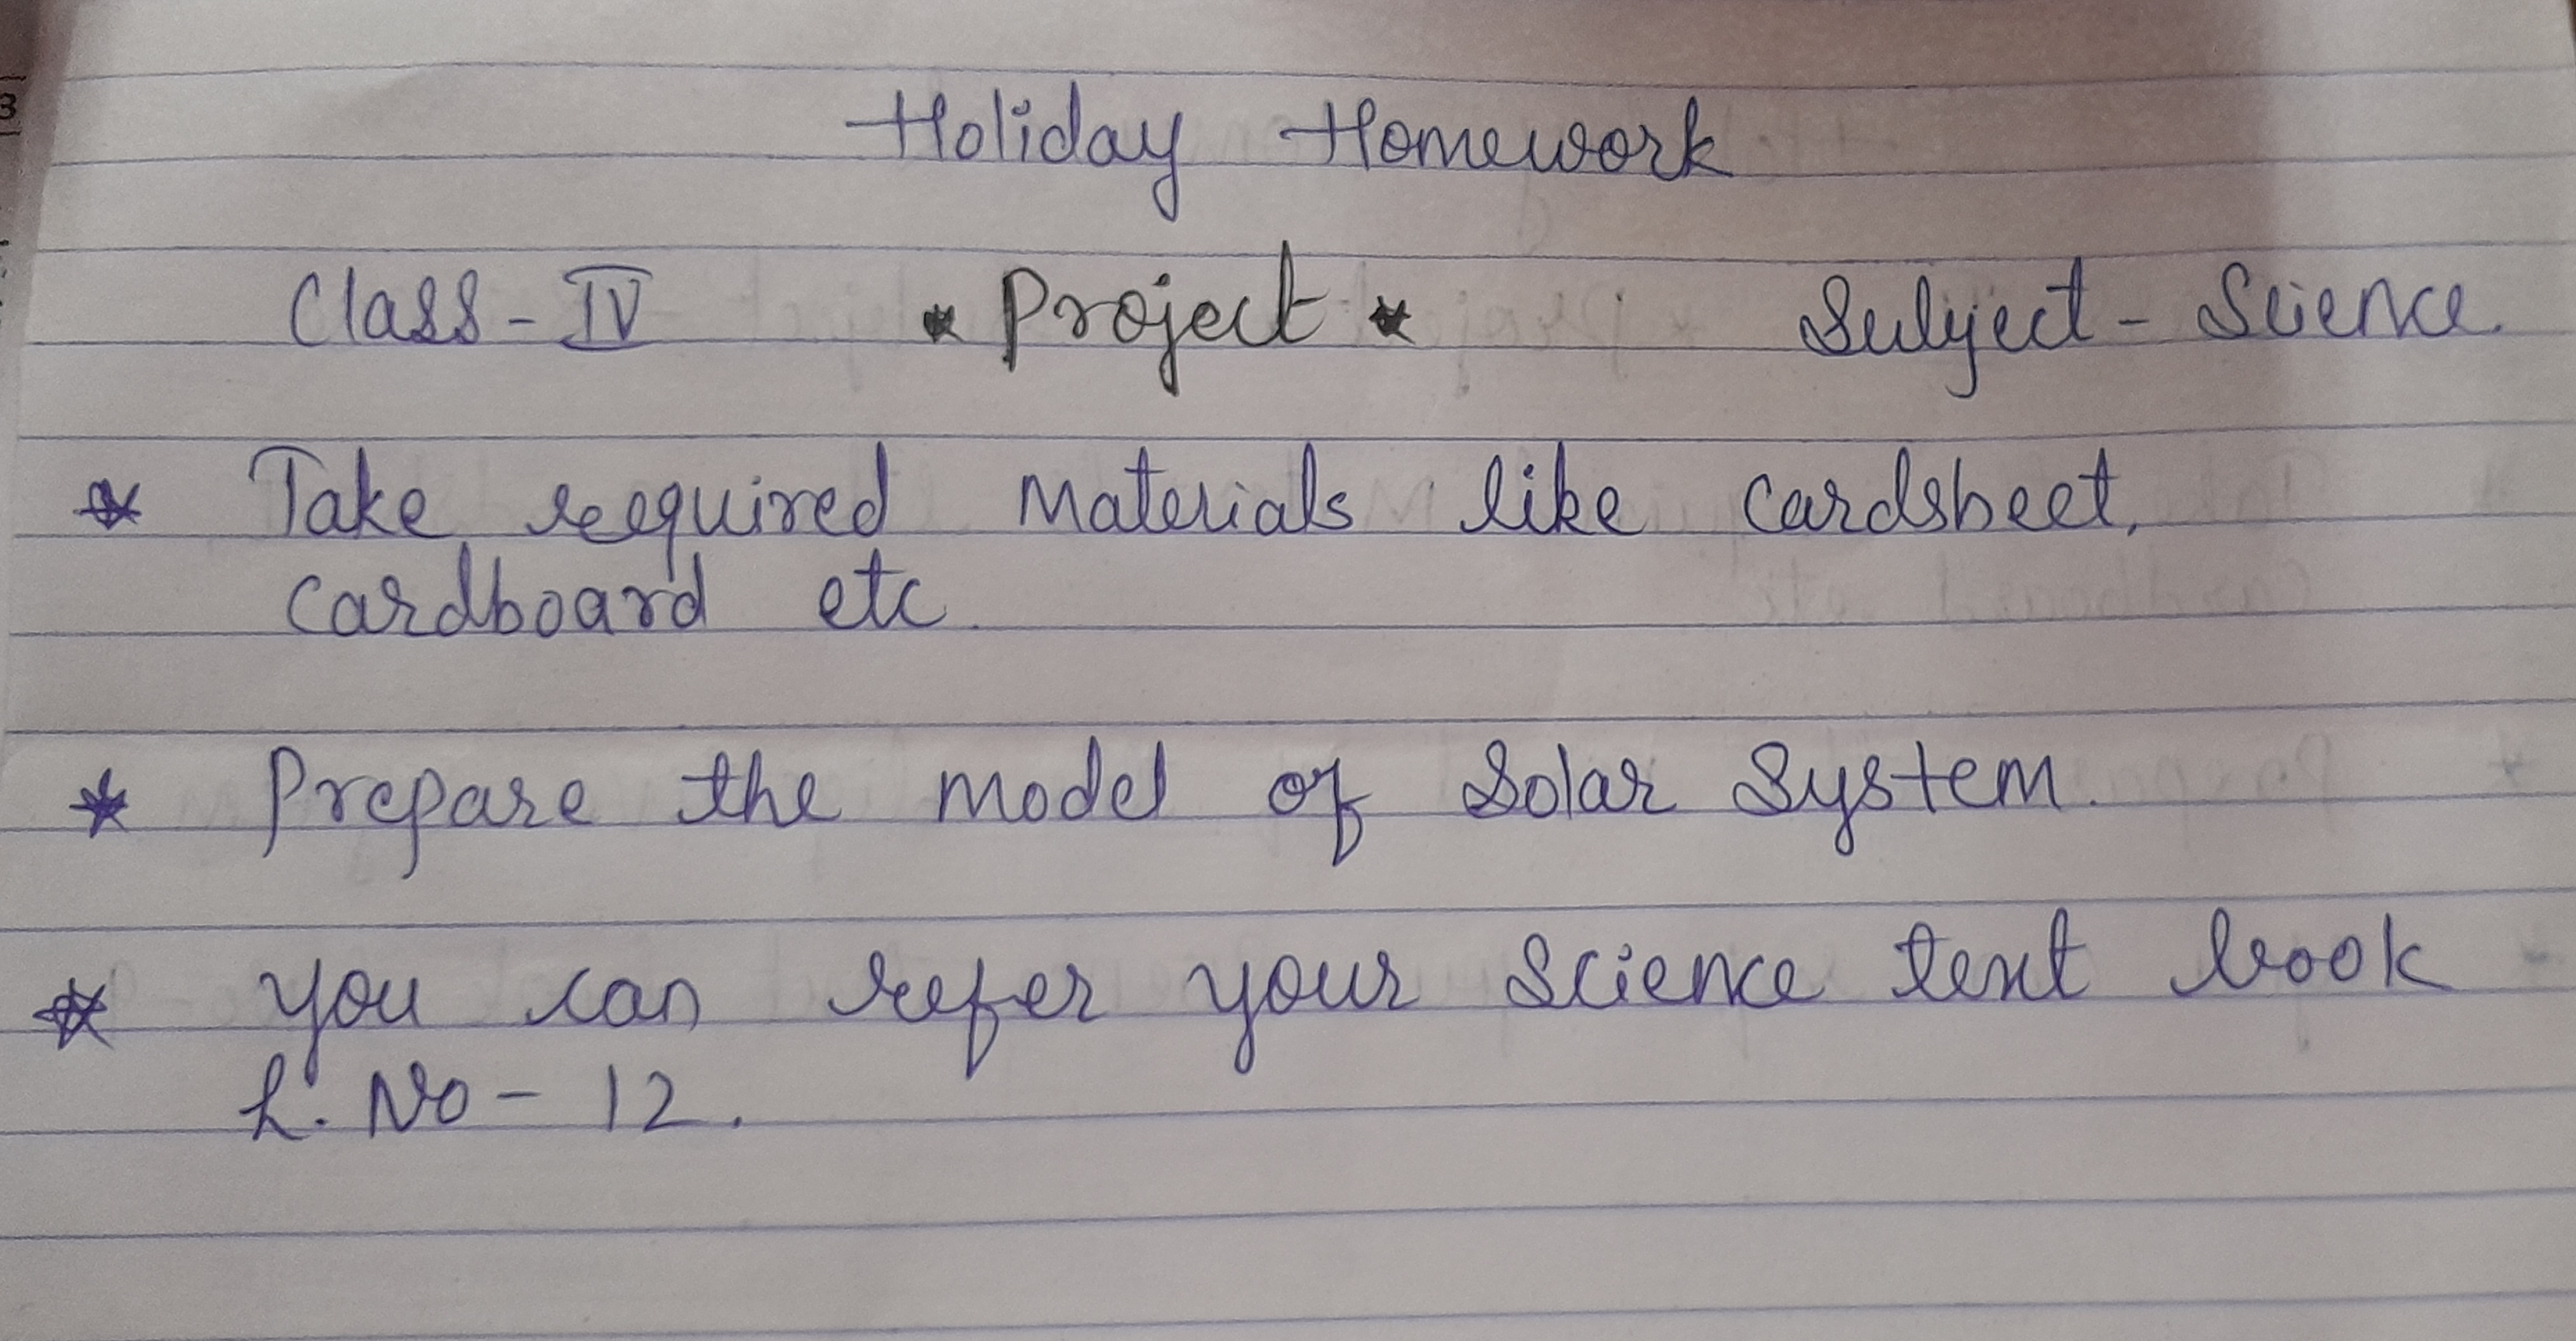 Holiday Homework
Class - IV * Project * Subject - Science.
* Take required Materials like cardsheet,
cardboard etc.
* Prepare the model of Solar System.
* you can refer your Science text book
L. No - 12.